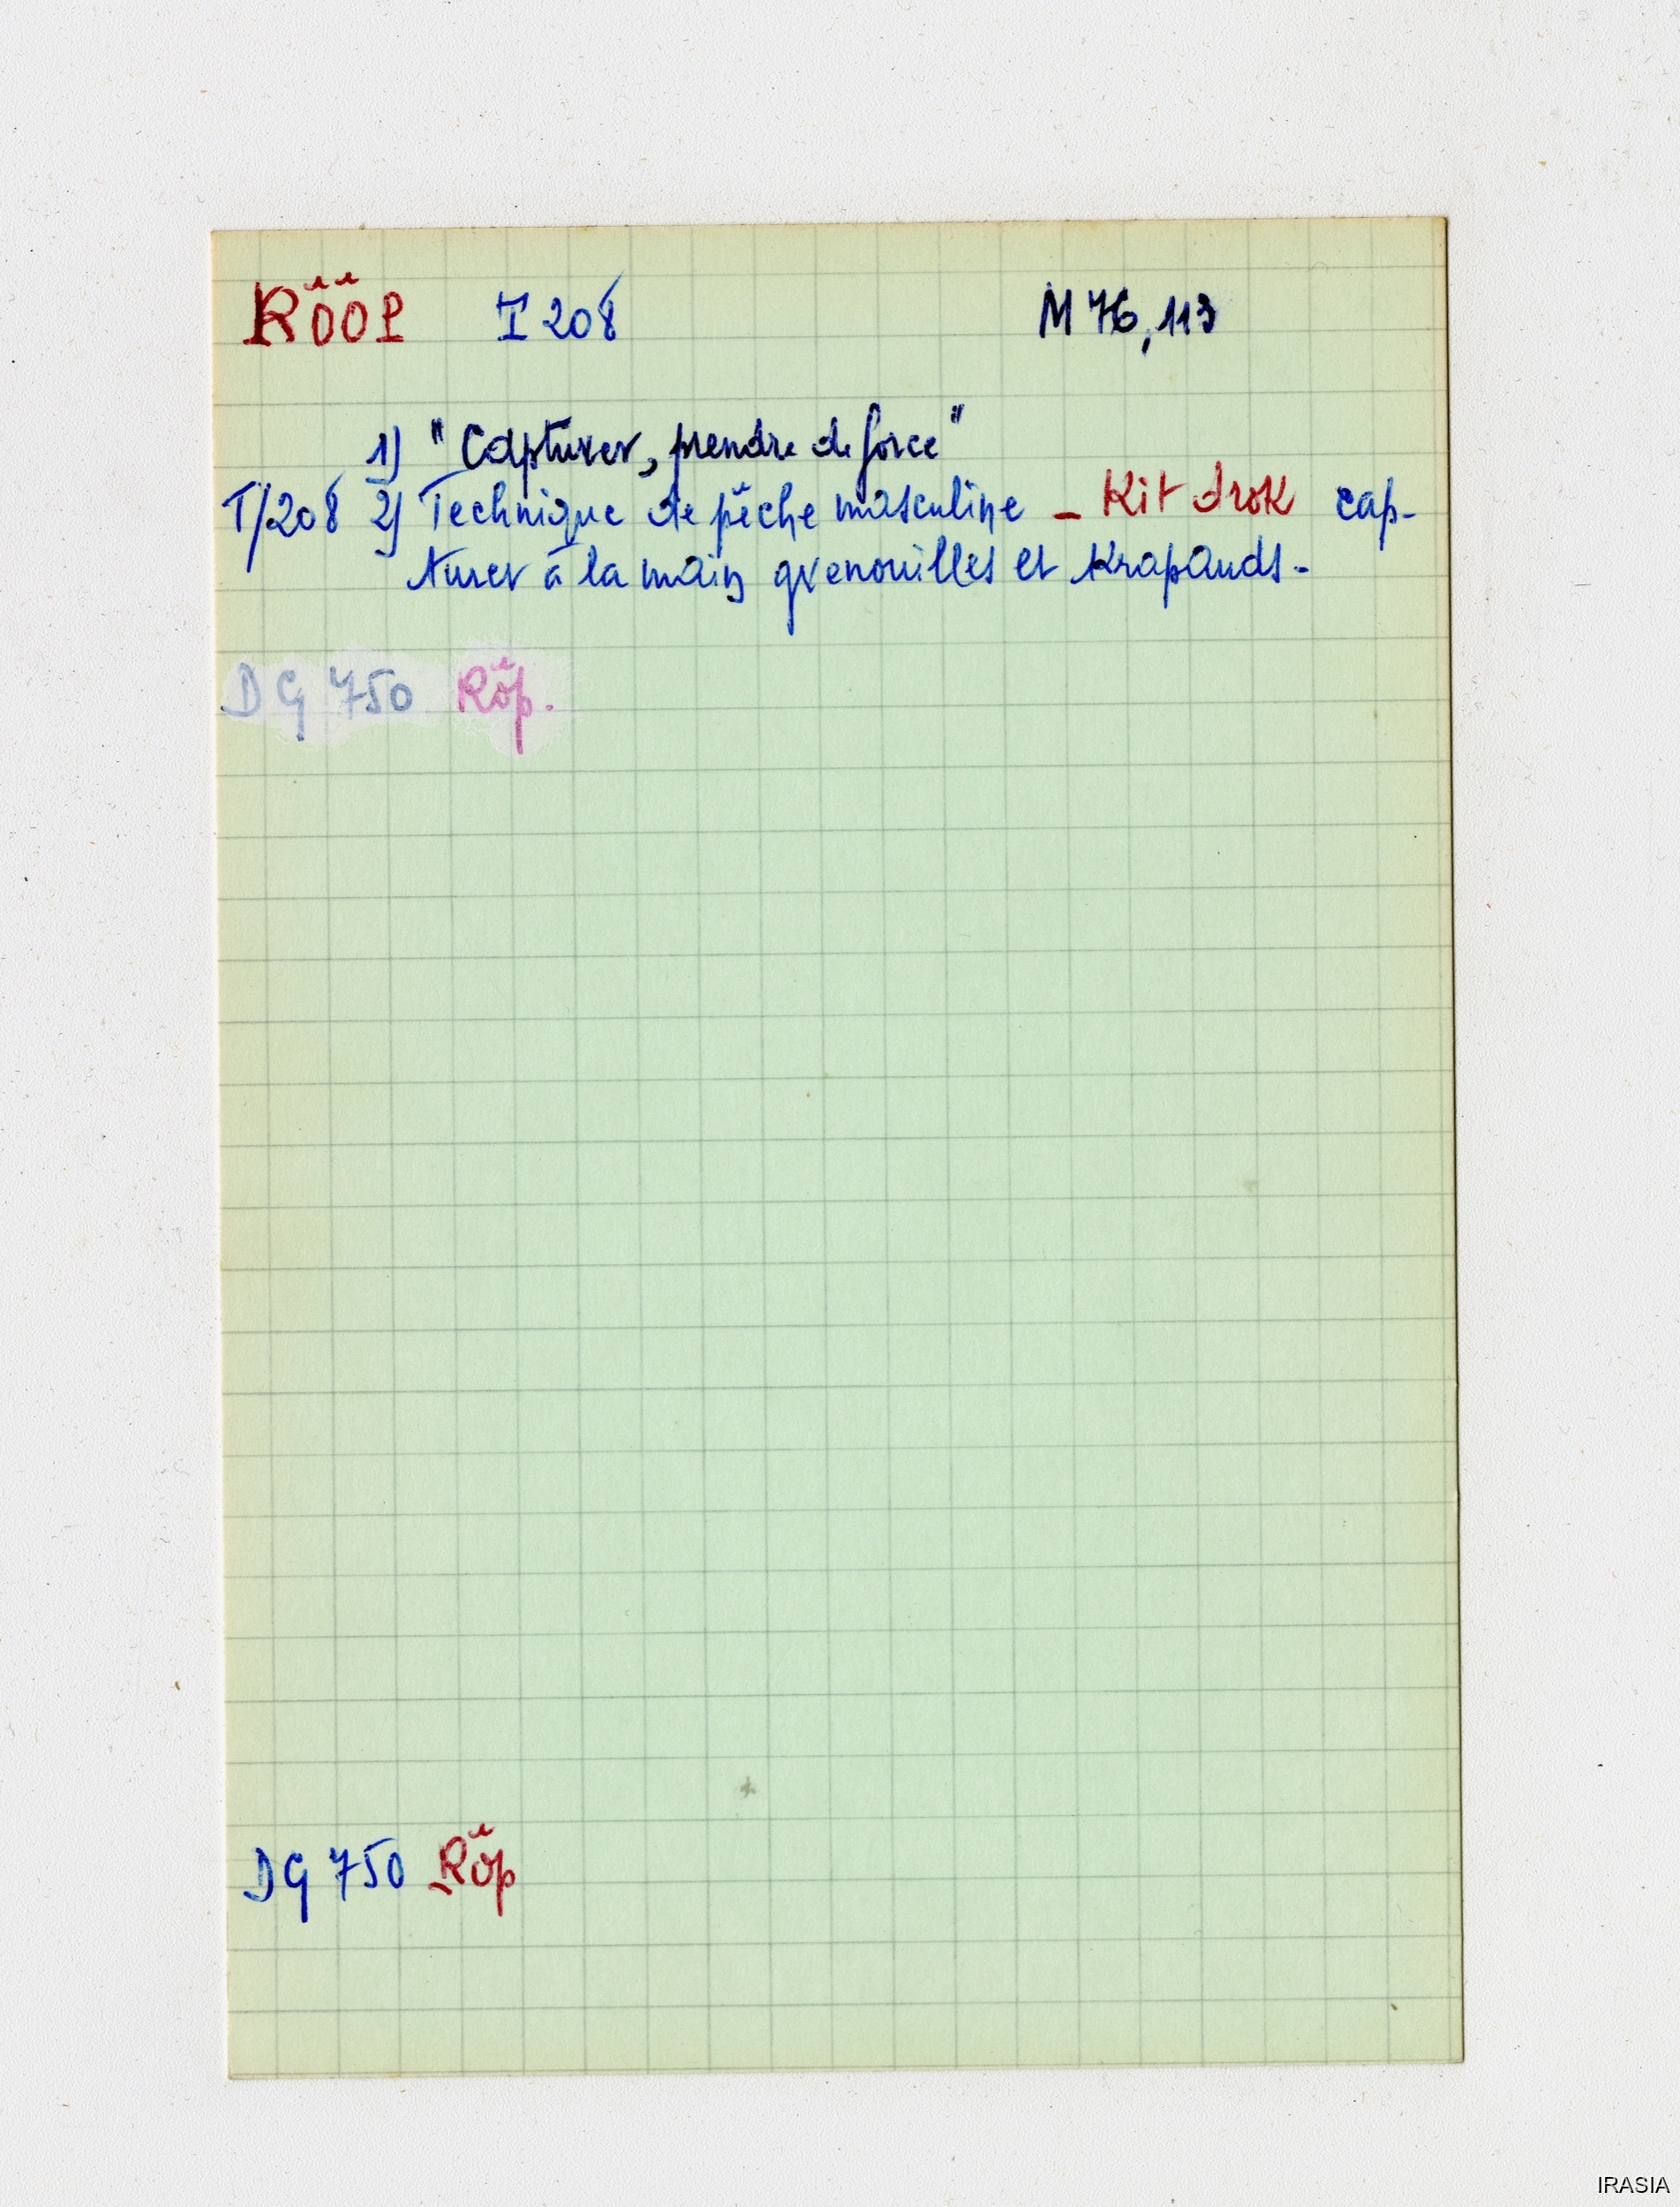 RÖÖP I 208 M 76, 113
1) "Capturer, prendre de force"
T/208 2) Technique de pêche masculine - Kit drok cap-
turer à la main grenouilles et krapauds -
DG 750 Röp.
DG 750 Röp
IRASIA